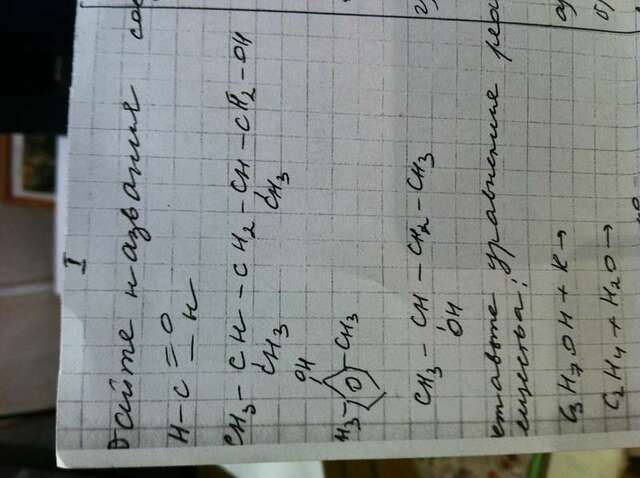 I
Дайте названия
H-C=O
-H
CH3-CH-CH2-CH-CH2-OH
CH3 CH3
OH
H3- -CH3
CH3-CH-CH2-CH3
OH
ставьте уравнение реа
ещества:
C3H7OH+K→
C2H4+H2O→